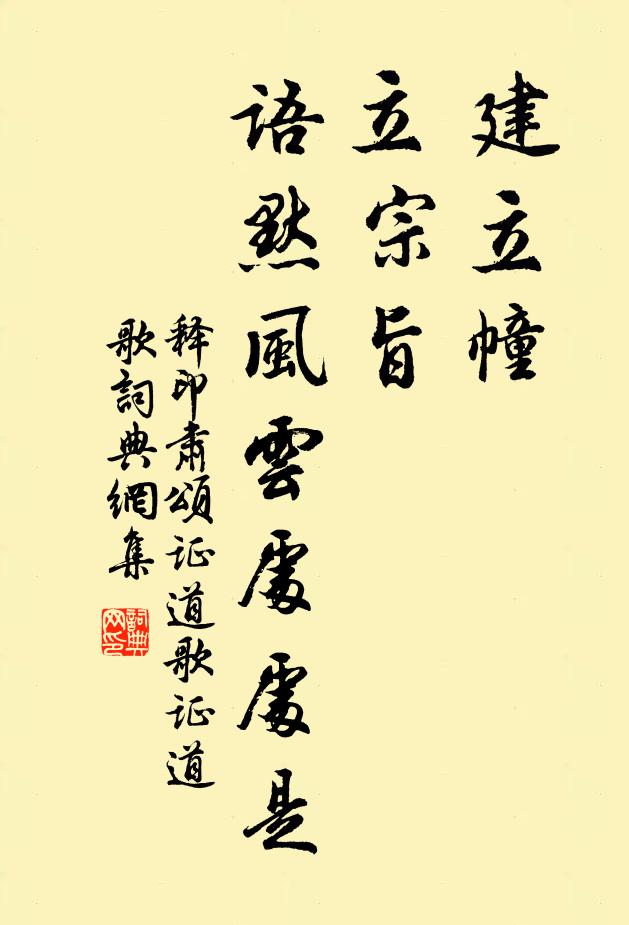 建立幢
立宗旨
語默風雲處處是
释印肃頌证道歌证道
歌詞典網集
詞典
网印